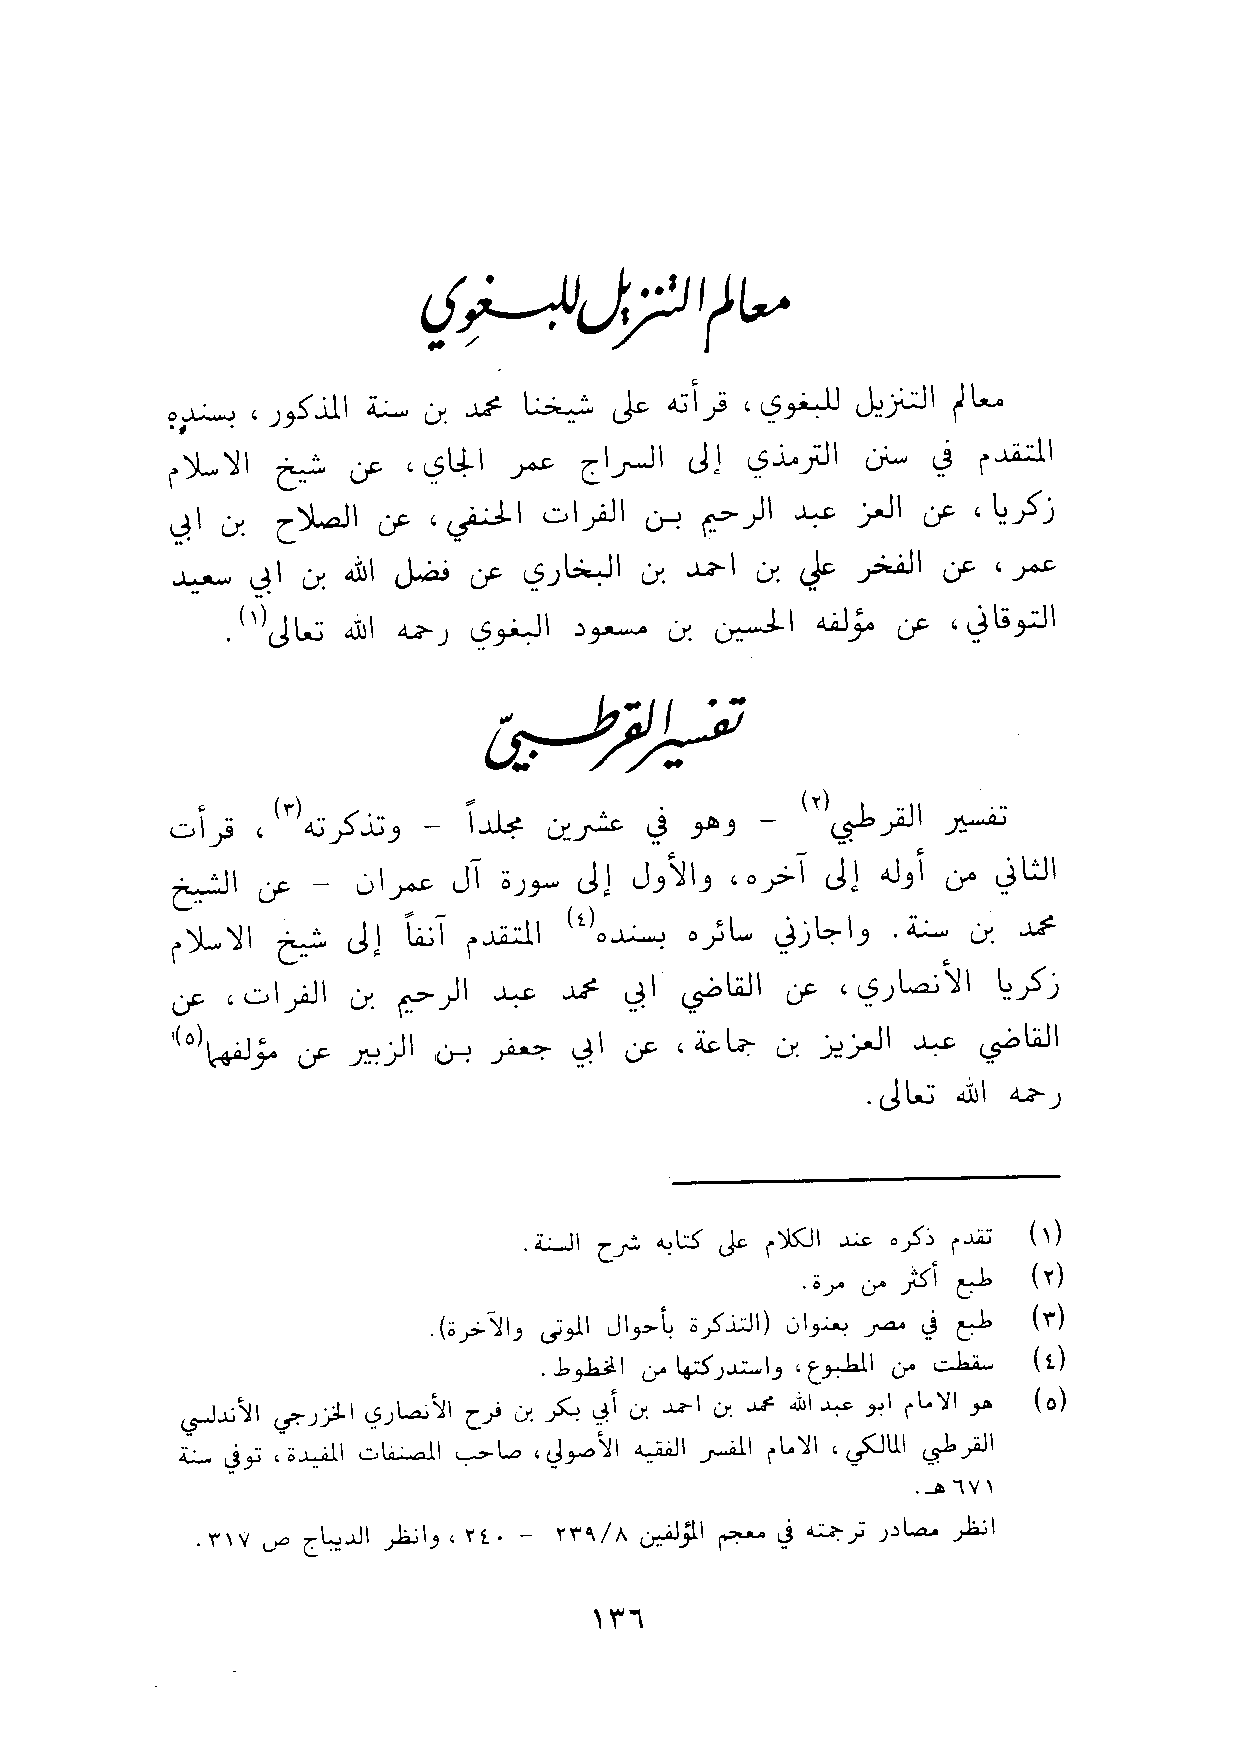 معالم التنزيل للبغوي
معالم التنزيل للبغوي، قرأته على شيخنا محمد بن سنة المذكور، بسنده
المتقدم في سنن الترمذي إلى السراج عمر الجاي، عن شيخ الاسلام
زكريا، عن العز عبد الرحيم بن الفرات الحنفي، عن الصلاح بن ابي
عمر، عن الفخر علي بن احمد بن البخاري عن فضل الله بن ابي سعيد
التوقاني، عن مؤلفه الحسين بن مسعود البغوي رحمه الله تعالى(١).
تفسير القرطبيّ
تفسير القرطبي(٢) - وهو في عشرين مجلداً - وتذكرته(٣)، قرأت
الثاني من أوله إلى آخره، والأول إلى سورة آل عمران - عن الشيخ
محمد بن سنة. واجازني سائره بسنده(٤) المتقدم آنفاً إلى شيخ الاسلام
زكريا الأنصاري، عن القاضي ابي محمد عبد الرحيم بن الفرات، عن
القاضي عبد العزيز بن جماعة، عن ابي جعفر بن الزبير عن مؤلفها(٥)
رحمه الله تعالى.
(١) تقدم ذكره عند الكلام على كتابه شرح السنة.
(٢) طبع أكثر من مرة.
(٣) طبع في مصر بعنوان (التذكرة بأحوال الموتى والآخرة).
(٤) سقطت من المطبوع، واستدركتها من المخطوط.
(٥) هو الامام ابو عبد الله محمد بن احمد بن أبي بكر بن فرح الأنصاري الخزرجي الأندلسي
القرطبي المالكي، الامام المفسر الفقيه الأصولي، صاحب المصنفات المفيدة، توفي سنة
٦٧١ هـ.
انظر مصادر ترجمته في معجم المؤلفين ٢٣٩/٨ - ٢٤٠، وانظر الديباج ص ٣١٧.
١٣٦